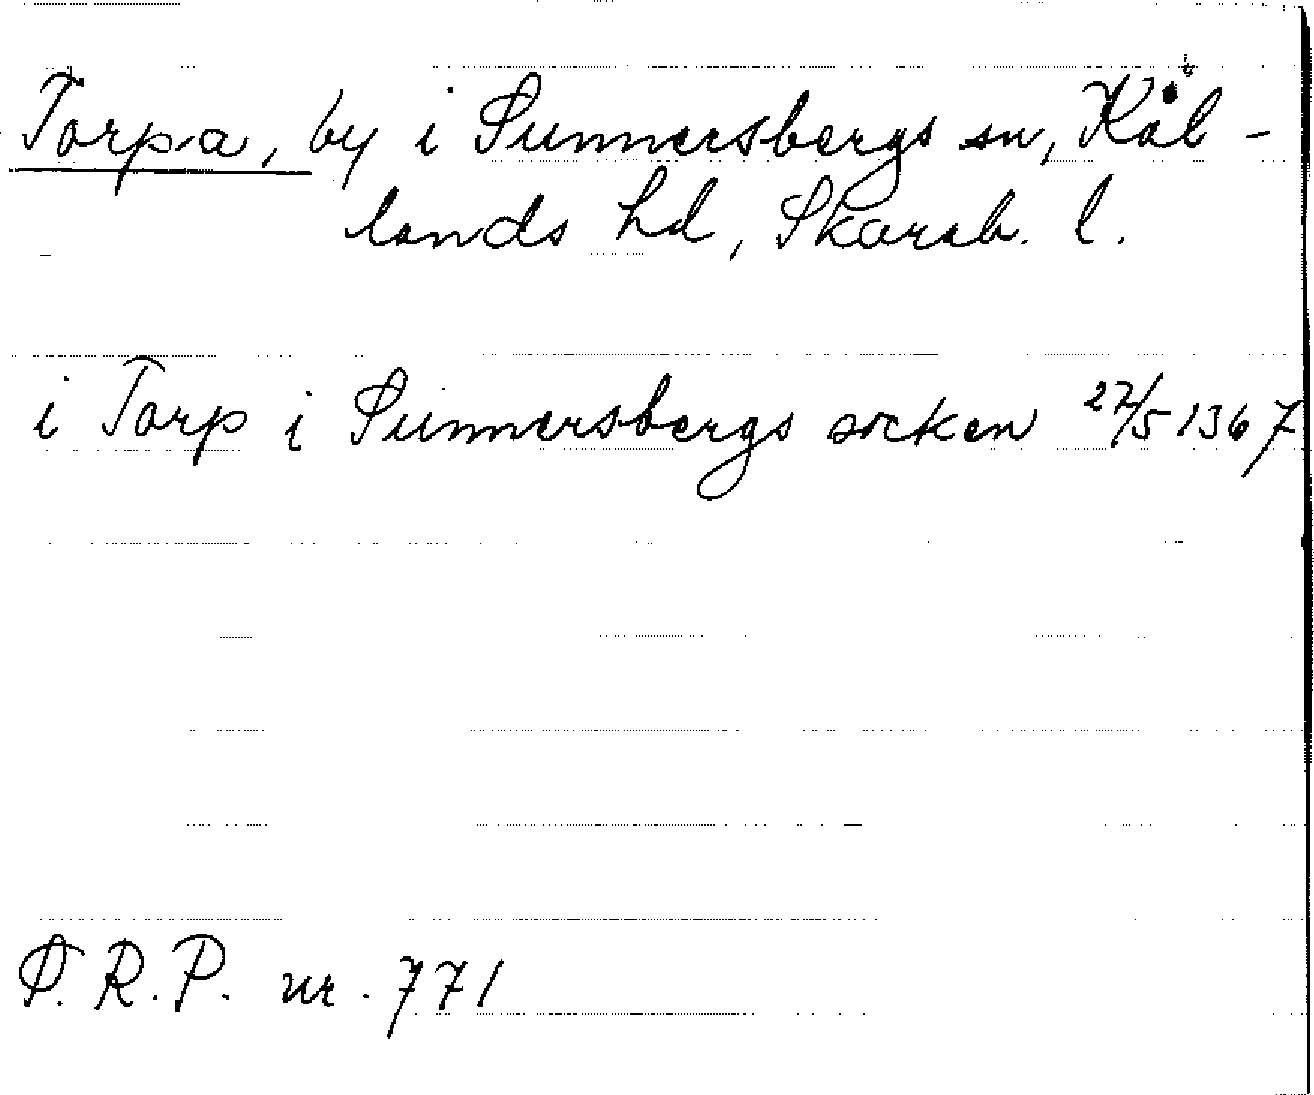 Torpa, by i Sunnersbergs sn, Kål-
lands hd, Skarab. l.
i Torp i Sunnersbergs socken 27/5 1367
S. R. P. nr. 771